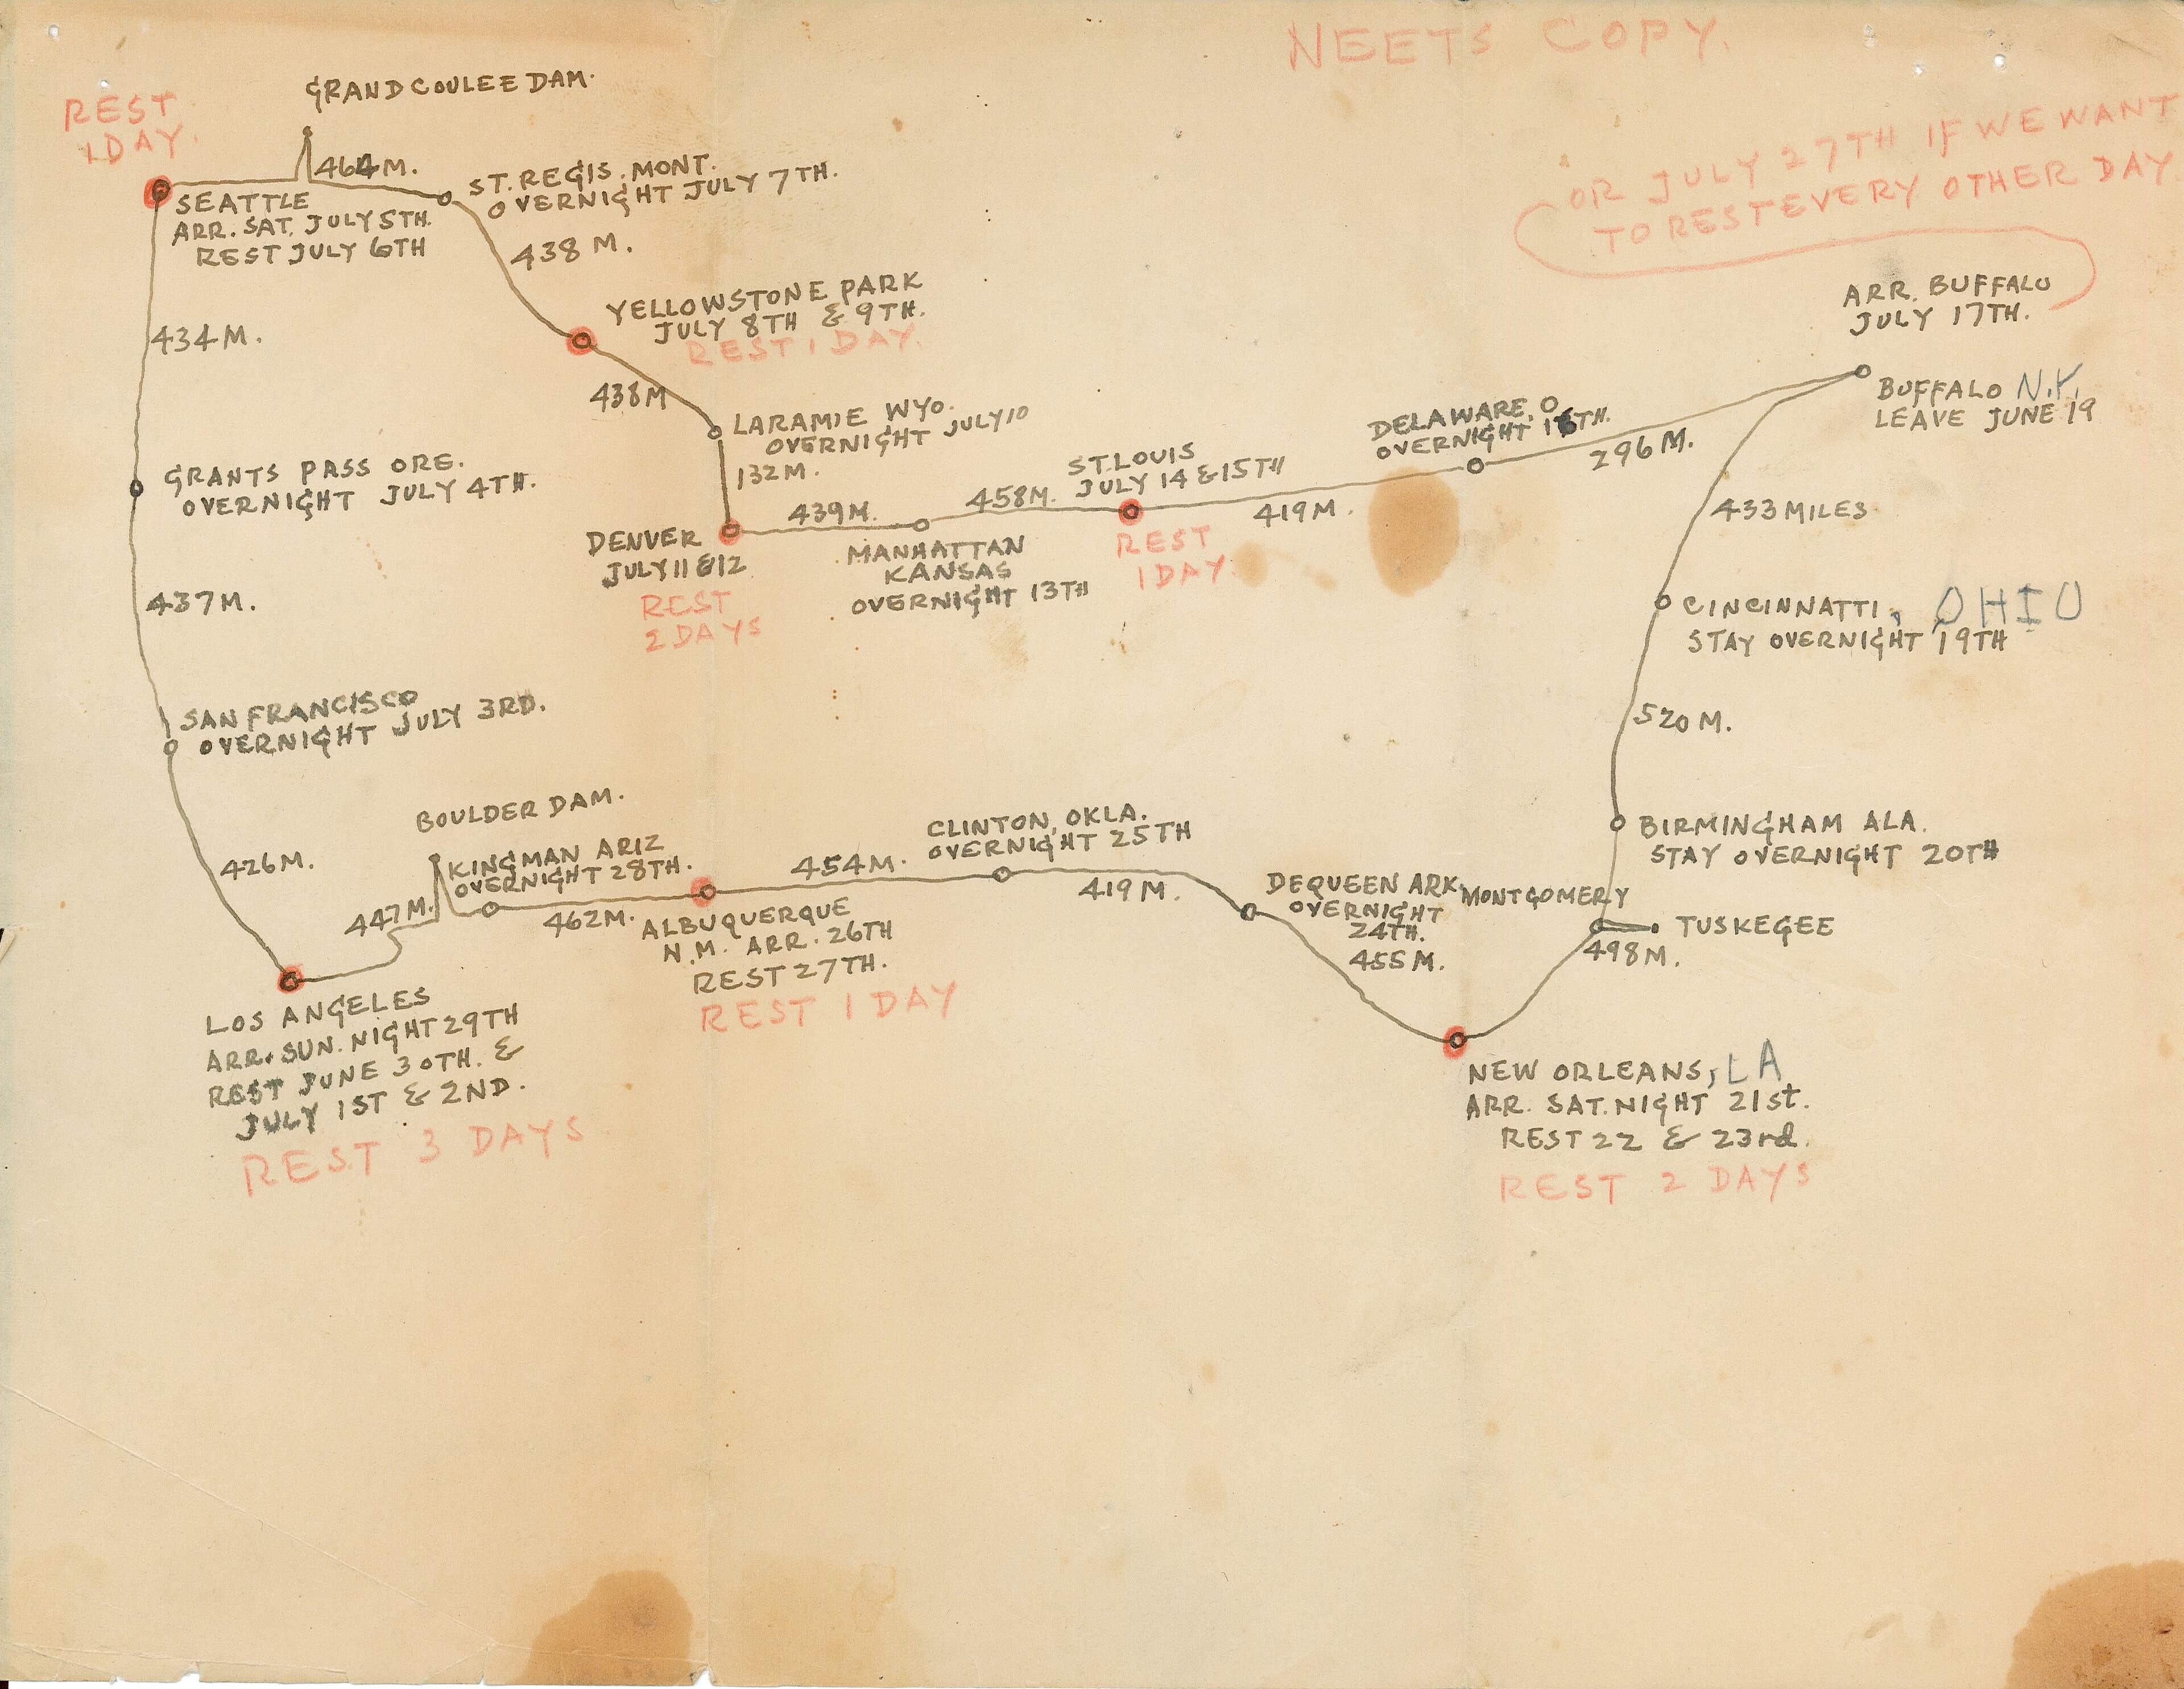 NEETS COPY.
OR JULY 27TH IF WE WANT
TO REST EVERY OTHER DAY
ARR. BUFFALO
JULY 17TH.
BUFFALO N.Y.
LEAVE JUNE 19
433 MILES
CINCINNATTI, OHIO
STAY OVERNIGHT 19TH
520 M.
BIRMINGHAM ALA.
STAY OVERNIGHT 20TH
MONTGOMERY
TUSKEGEE
498 M.
NEW ORLEANS, LA
ARR. SAT. NIGHT 21st.
REST 22 & 23rd.
REST 2 DAYS
455 M.
DEQUEEN ARK.
OVERNIGHT
24TH.
419 M.
CLINTON, OKLA.
OVERNIGHT 25TH
454 M.
ALBUQUERQUE
N.M. ARR. 26TH
REST 27TH.
REST 1 DAY
462 M.
KINGMAN ARIZ
OVERNIGHT 28TH.
BOULDER DAM.
447 M.
LOS ANGELES
ARR. SUN. NIGHT 29TH
REST JUNE 30TH. &
JULY 1ST & 2ND.
REST 3 DAYS
426 M.
SAN FRANCISCO
OVERNIGHT JULY 3RD.
437 M.
GRANTS PASS ORE.
OVERNIGHT JULY 4TH.
434 M.
REST
1 DAY.
SEATTLE
ARR. SAT. JULY 5TH.
REST JULY 6TH
GRAND COULEE DAM.
464 M.
ST. REGIS. MONT.
OVERNIGHT JULY 7TH.
438 M.
YELLOWSTONE PARK
JULY 8TH & 9TH.
REST 1 DAY.
438 M
LARAMIE WYO.
OVERNIGHT JULY 10
132 M.
DENVER
JULY 11 & 12
REST
2 DAYS
439 M.
MANHATTAN
KANSAS
OVERNIGHT 13TH
458 M.
ST. LOUIS
JULY 14 & 15TH
REST
1 DAY.
419 M.
DELAWARE, O.
OVERNIGHT 16TH.
296 M.